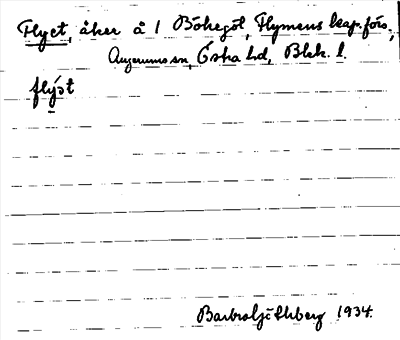 Flyet, åker å 1 Bökegöl, Flymens kap. förs.,
Augerums sn, Östra hd, Blek. l.
flýət
Barbro Ljöthberg 1934.